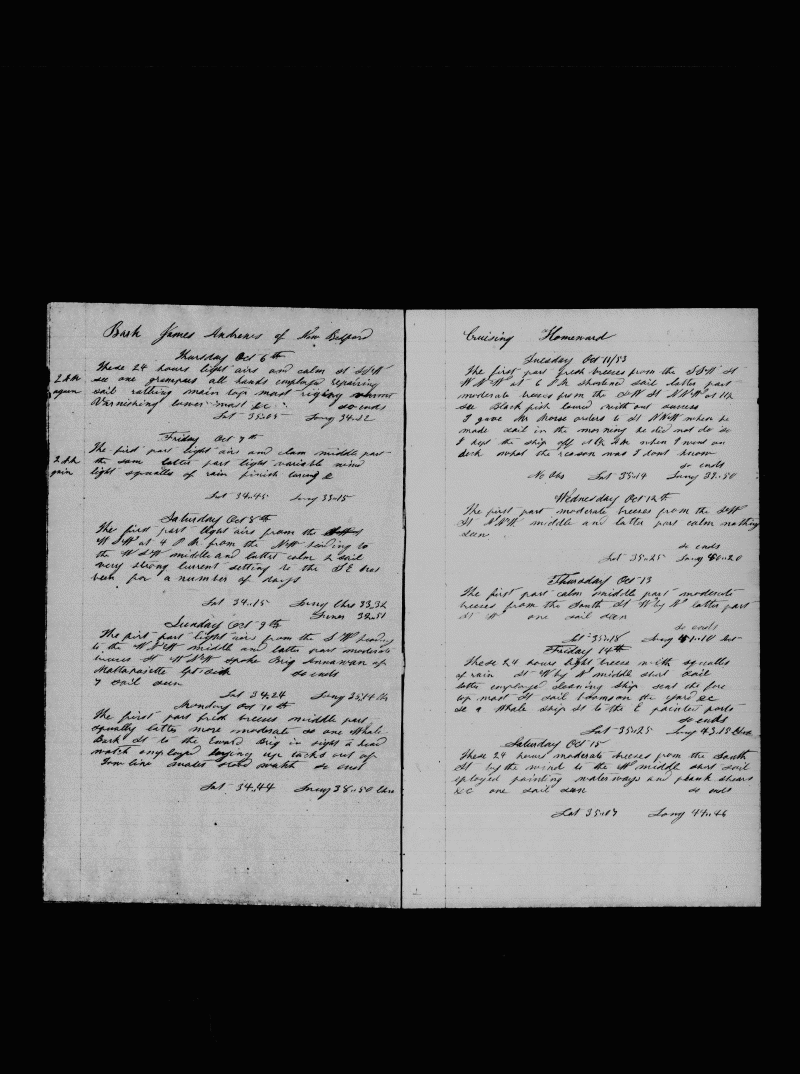 Bark James Andrews of New Bedford
Thursday Oct 6th
These 24 hours light airs and calm st
2 AM
see one grampus all hands employed repairing
again
sail rattling main top mast
Varnishing lower mast &c so ends
Lat 35..03 Long 34..12
Friday Oct 7th
The first part light airs and clam middle part
the same latter part light variable wind
light squalls of rain finish
Lat 34..45 Long 33..15
Saturday Oct 8th
The first part light airs from the
WSW at 4 PM from the NW heading to
the WSW middle and latter calm 2 sail
very strong current setting to the SE has
been for a number of days
Lat 34..15 Long Chro 33,32
Sunday Oct 9th
The first part light airs from the SW heading
to the WNW middle and latter part moderate
breeses st WNW spoke Brig Annawan of
Mattapoisett so ends
7 sail seen
Lat 34,24 Long
Monday Oct 10th
The first part fresh breeses middle part
squally latter more moderate se one Whale
Bark St to the Eward Brig in sight a head
watch employed laying up tacks out of
Tow line so ends
Lat 34..44 Long 38..50 Chro
Cruising Homeward
Tuesday Oct 11/53
The first part fresh breeses from the SSW St
WNW at 6 PM shortened sail latter part
moderate breeses from the SW St NNW at 11
see Black fish lowed without success
I gave Mr Morse orders to St NNW when he
made sail in the morning he did not do so
I kept the ship off at AM when I went on
deck what the reason was I dont know
so ends
No Obs Lat 35..14 Long 39..50
Wednesday Oct 12th
The first part moderate breeses from the SW
St NNW middle and latter part calm nothing
seen
so ends
Lat 35..25 Long 40..20
Thursday Oct 13
The first part calm middle part moderate
breeses from the South St W by N latter part
St W one sail seen
so ends
Lat 35..18 Long 41..10
Friday 14th
These 24 hours light breese with squalls
of rain St W by N middle short sail
latter employed cleaning ship sent the fore
top mast St sail boomson the yard &c
se a Whale ship St to the E painted ports
so ends
Lat 35..25 Long 43..15
Saturday Oct 15
These 24 hours moderate breeses from the South
St by the wind to the W middle short sail
eployed painting waterways and plank shears
&c one sail seen so ends
Lat 35..07 Long 44..46